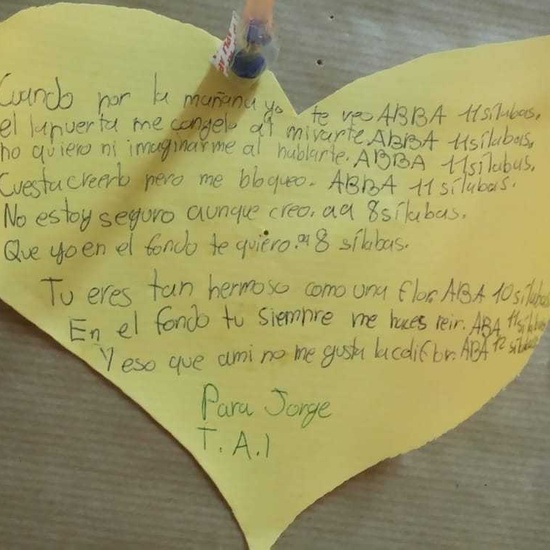 Cuando por la mañana yo te veo ABBA 11 sílabas,
el la puerta me congelo al mirarte. ABBA 11 sílabas,
no quiero ni imaginarme al hablarte. ABBA 11 sílabas.
Cuesta creerlo pero me bloqueo. ABBA 11 sílabas.
No estoy seguro aunque creo. aa 8 sílabas.
Que yo en el fondo te quiero. aa 8 sílabas.
Tu eres tan hermoso como una flor. ABA 10 sílabas
En el fondo tu siempre me haces reir. ABA 11 sílabas
Y eso que ami no me gusta la ABA 12 sílabas
Para Jorge
T.A.I